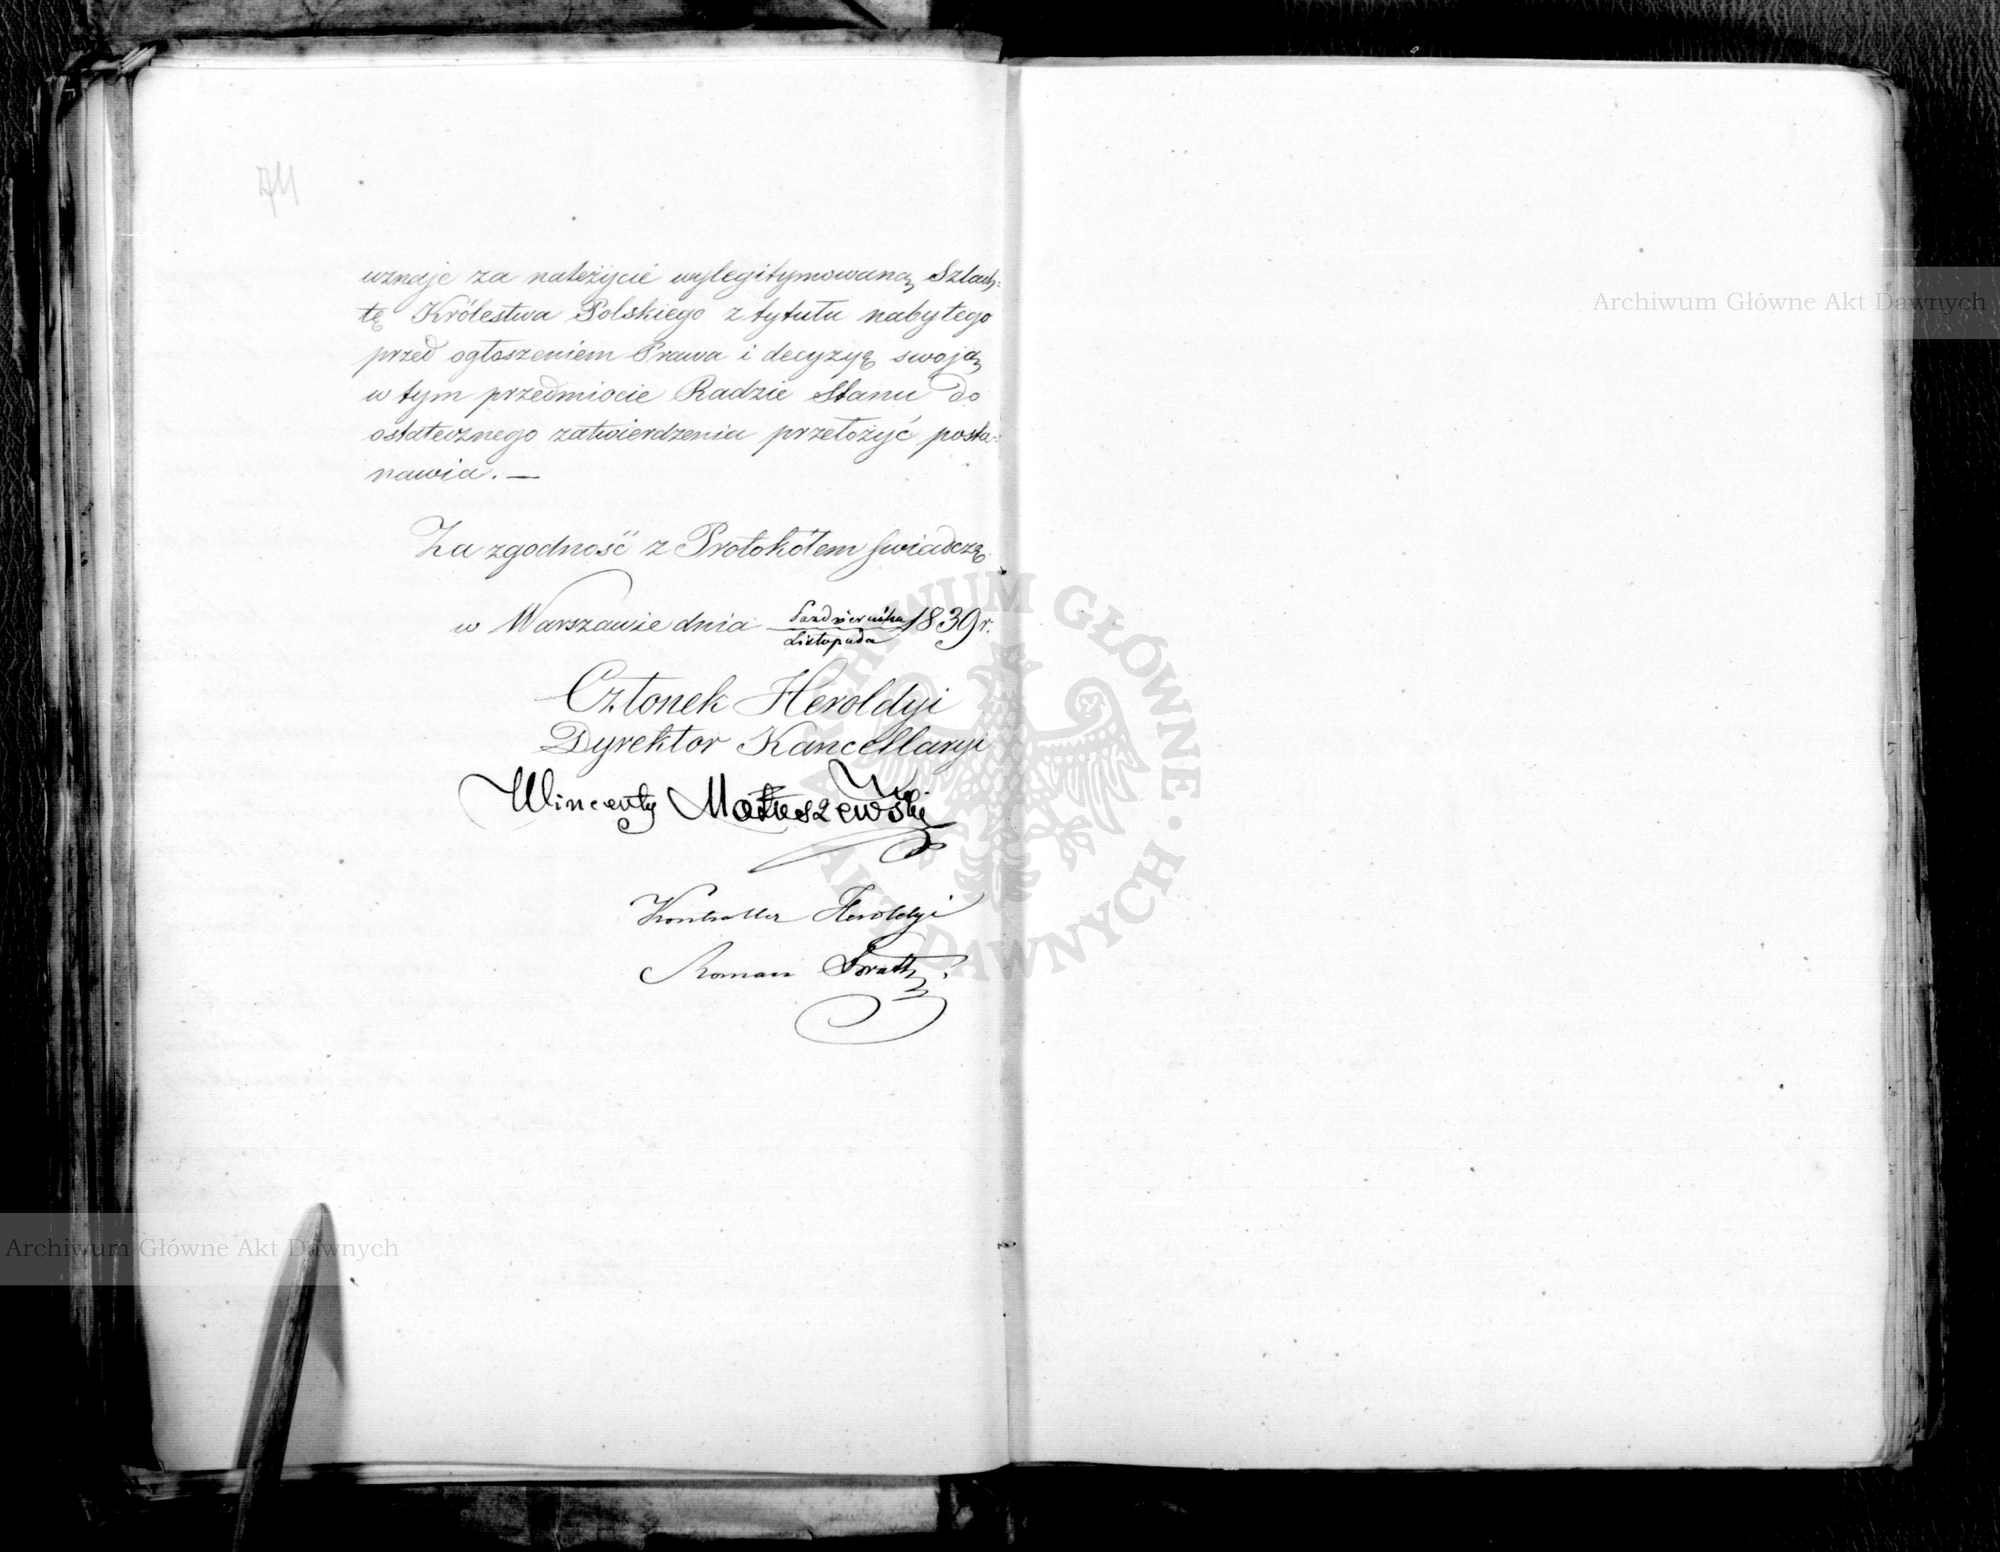 74
uznaje za należycie wylegitymowaną Szlach:
tę Królestwa Polskiego z tytułu nabytego
przed ogłoszeniem Prawa i decyzyę swoją
w tym przedmiocie Radzie Stanu do
ostatecznego zatwierdzenia przełożyć posta:
nawia. —
Za zgodność z Protokółem świadczą
w Warszawie dnia Października/Listopada 1839 r.
Członek Heroldyi
Dyrektor Kancellaryi
Wincenty Matuszewski
Kontroller Heroldyi
Roman
Archiwum Główne Akt Dawnych
Archiwum Główne Akt Dawnych
ARCHIWUM GŁÓWNE · AKT DAWNYCH ·